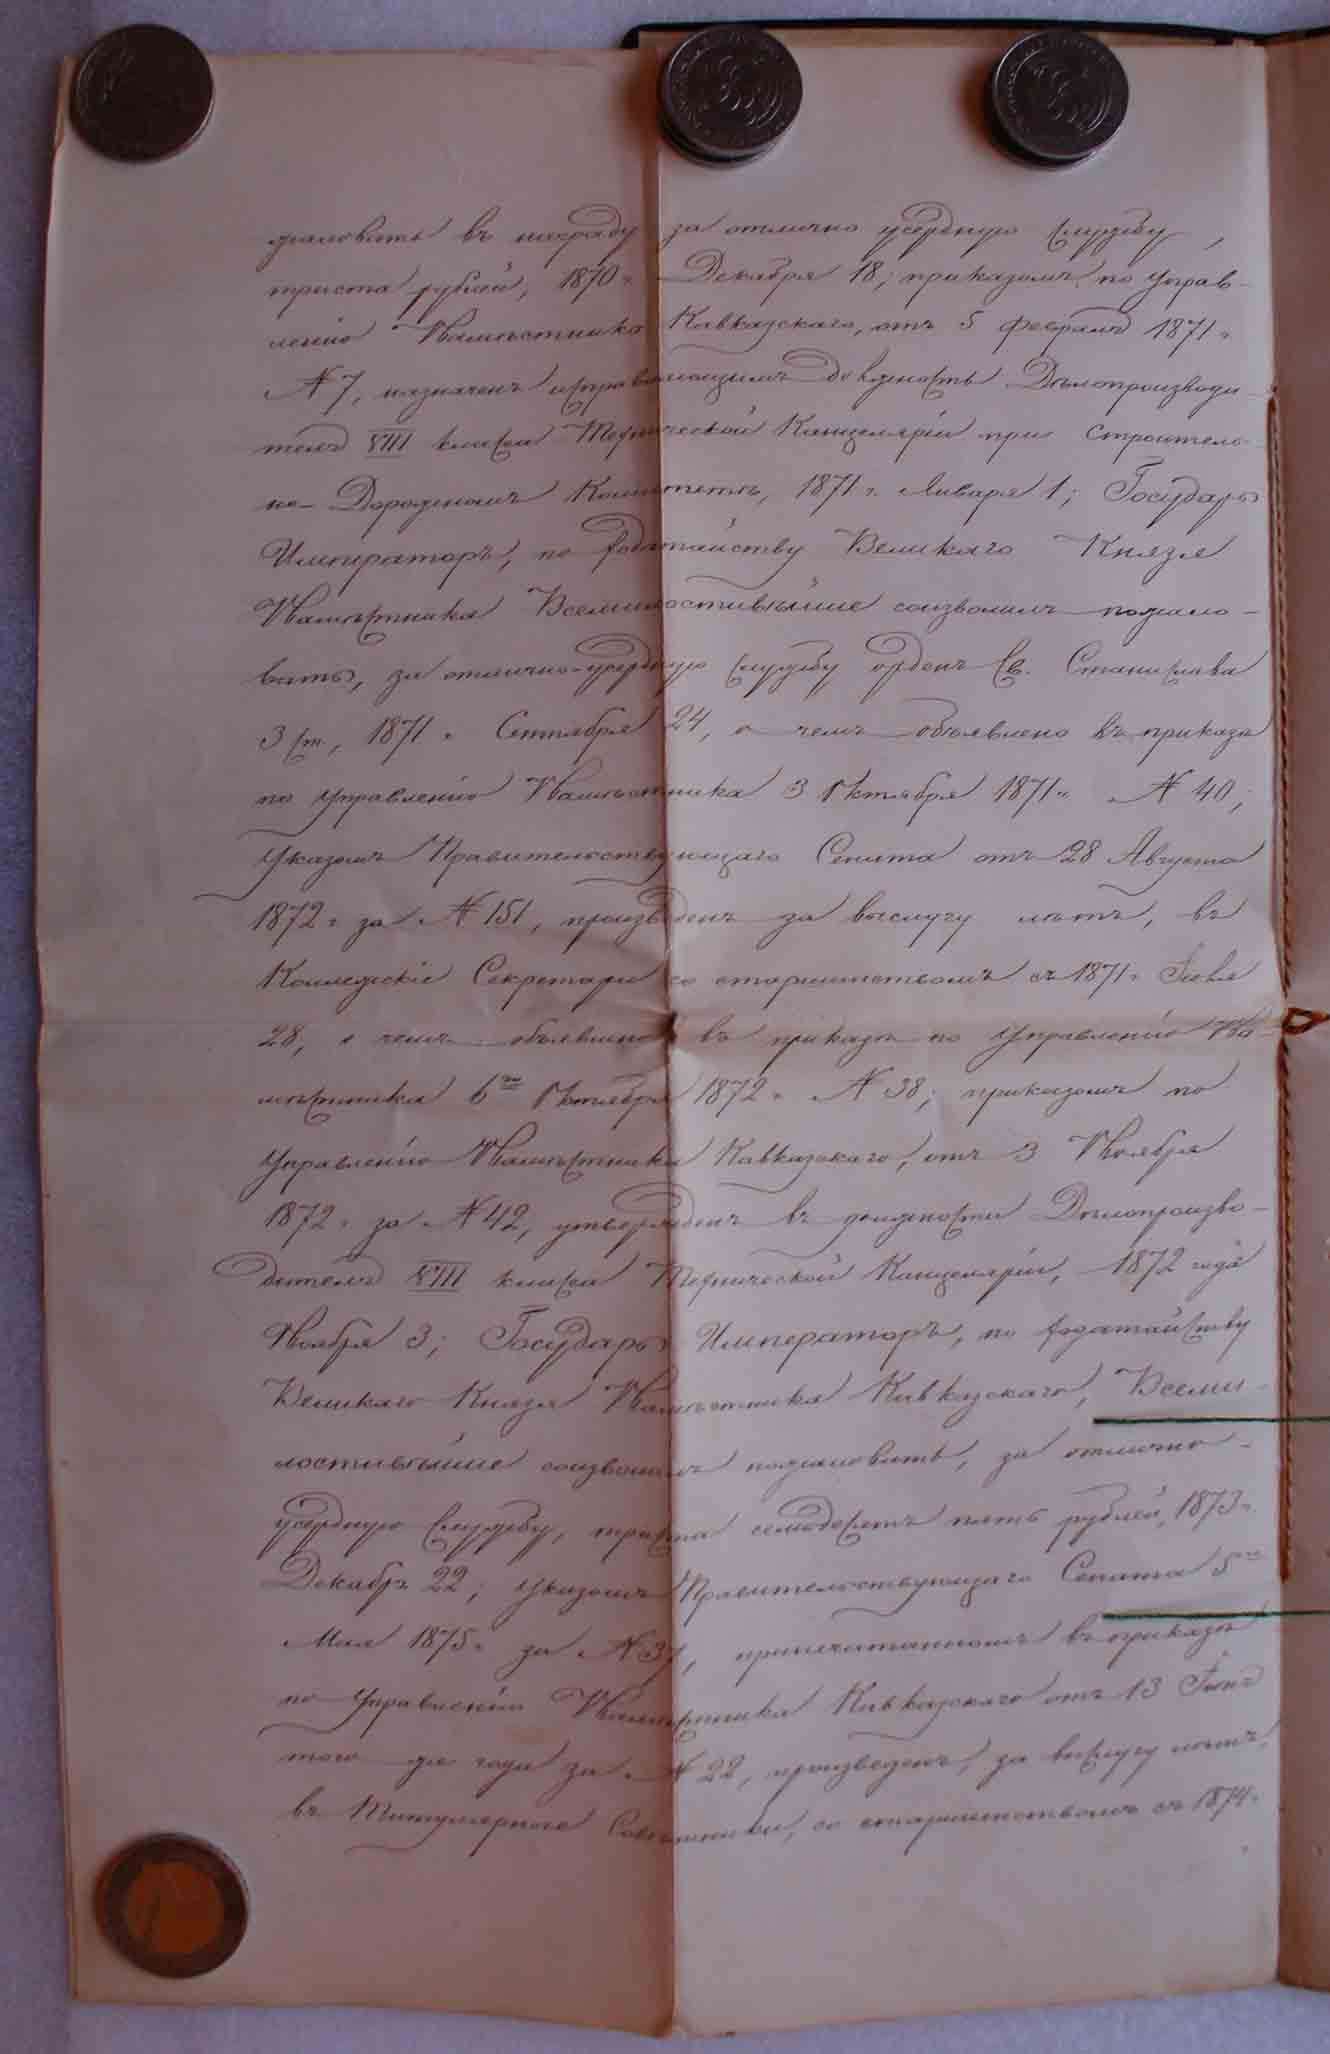 жаловать въ награду за отлично усердную службу,
триста рублей, 1870 г. Декабря 18; приказомъ по Управ-
ленію Намѣстника Кавказскаго, отъ 5 Февраля 1871 г.
№ 7, назначенъ исправляющимъ должность Дѣлопроизводи-
теля VIII класса Технической Канцеляріи при Строитель-
но-Дорожномъ Комитетѣ, 1871 г. Января 1; Государь
Императоръ, по ходатайству Великаго Князя
Намѣстника Всемилостивѣйше соизволилъ пожало-
вать, за отлично-усердную службу орденъ Св. Станислава
3 ст., 1871 г. Сентября 24, о чемъ объявлено въ приказѣ
по Управленію Намѣстника 3 Октября 1871 г. № 40;
Указомъ Правительствующаго Сената отъ 28 Августа
1872 г. за № 151, произведенъ за выслугу лѣтъ, въ
Коллежскіе Секретари со старшинствомъ съ 1871 г. Іюля
28, о чемъ объявлено въ приказѣ по Управленію На-
мѣстника 6го Октября 1872 г. № 38; приказомъ по
Управленію Намѣстника Кавказскаго, отъ 3 Ноября
1872 г. за № 42, утвержденъ въ должности Дѣлопроизво-
дителя VIII класса Технической Канцеляріи, 1872 года
Ноября 3; Государь Императоръ, по ходатайству
Великаго Князя Намѣстника Кавказскаго, Всеми-
лостивѣйше соизволилъ пожаловать, за отлично-
усердную службу, триста семьдесятъ пять рублей, 1873 г.
Декабрь 22; Указомъ Правительствующаго Сената 5го
Мая 1875 г. за № 37, припечатанномъ въ приказѣ
по Управленію Намѣстника Кавказскаго отъ 13 Іюня
того же года за № 22, произведенъ, за выслугу лѣтъ,
въ Титулярные Совѣтники, со старшинствомъ съ 1874 г.